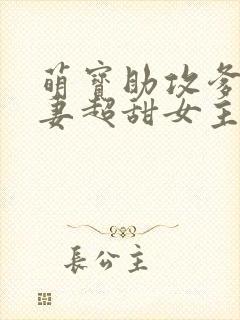 萌寶助攻爹
妻超甜女主
長公主